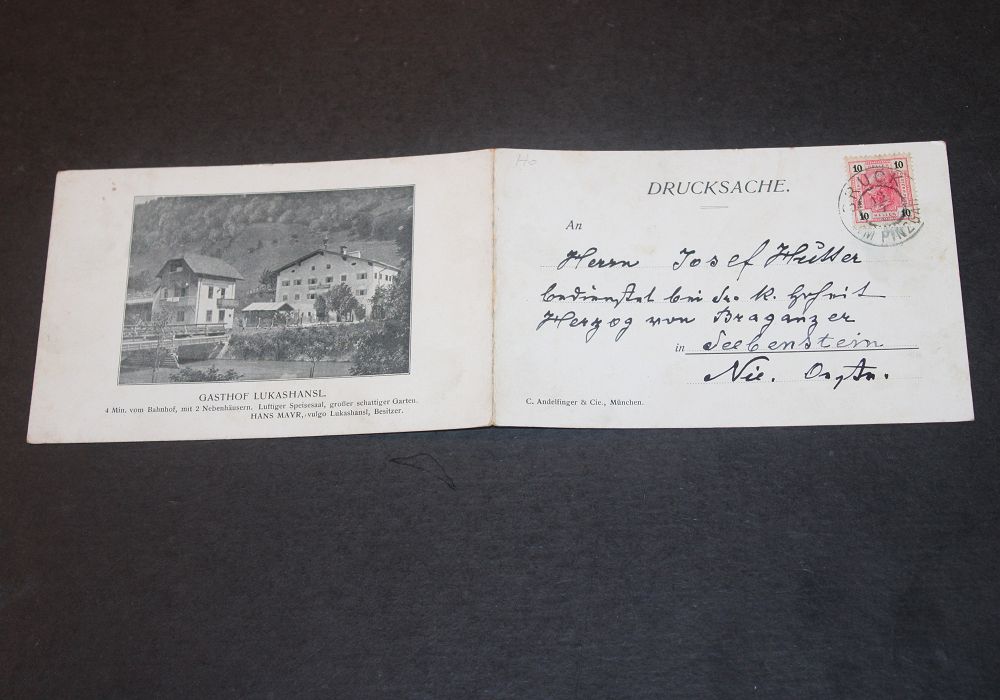 GASTHOF LUKASHANSL.
4 Min. vom Bahnhof, mit 2 Nebenhäusern. Luftiger Speisesaal, großer schattiger Garten.
HANS MAYR, vulgo Lukashansl, Besitzer.
Ho
DRUCKSACHE.
10 10
10 10
BRUCK
IM PINZGAU
An
Herrn Josef Hütter
bedienstet bei Sr. K. Hoheit
Herzog von Braganzer
in Seebenstein
Nie. Östr.
C. Andelfinger & Cie., München.